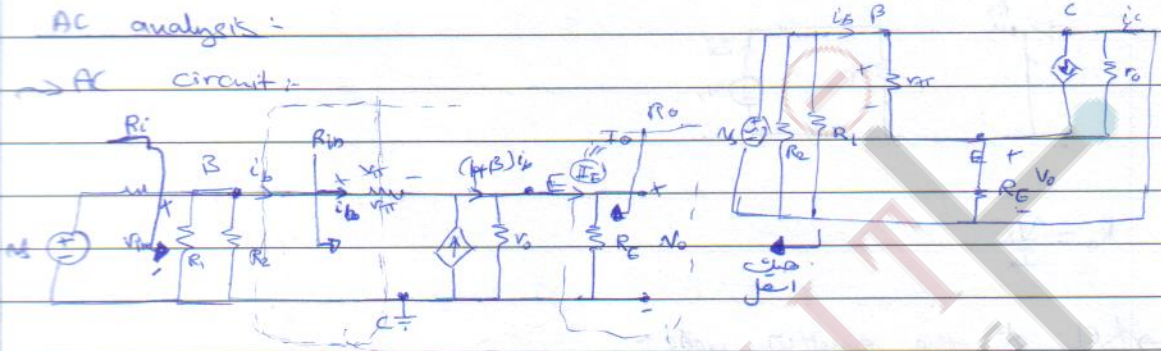 AC analysis :-
→ AC circuit :-
Ri
B
ib
Rin
ib
+ Vπ -
rπ
(1+β) ib
E
IE
Io
Ro
+
Vs
+
-
+
Vin
R1
R2
ro
RE
Vo
-
C
ib B
C
ic
+
rπ
-
ro
Vs
R2
R1
E
+
RE
Vo
-